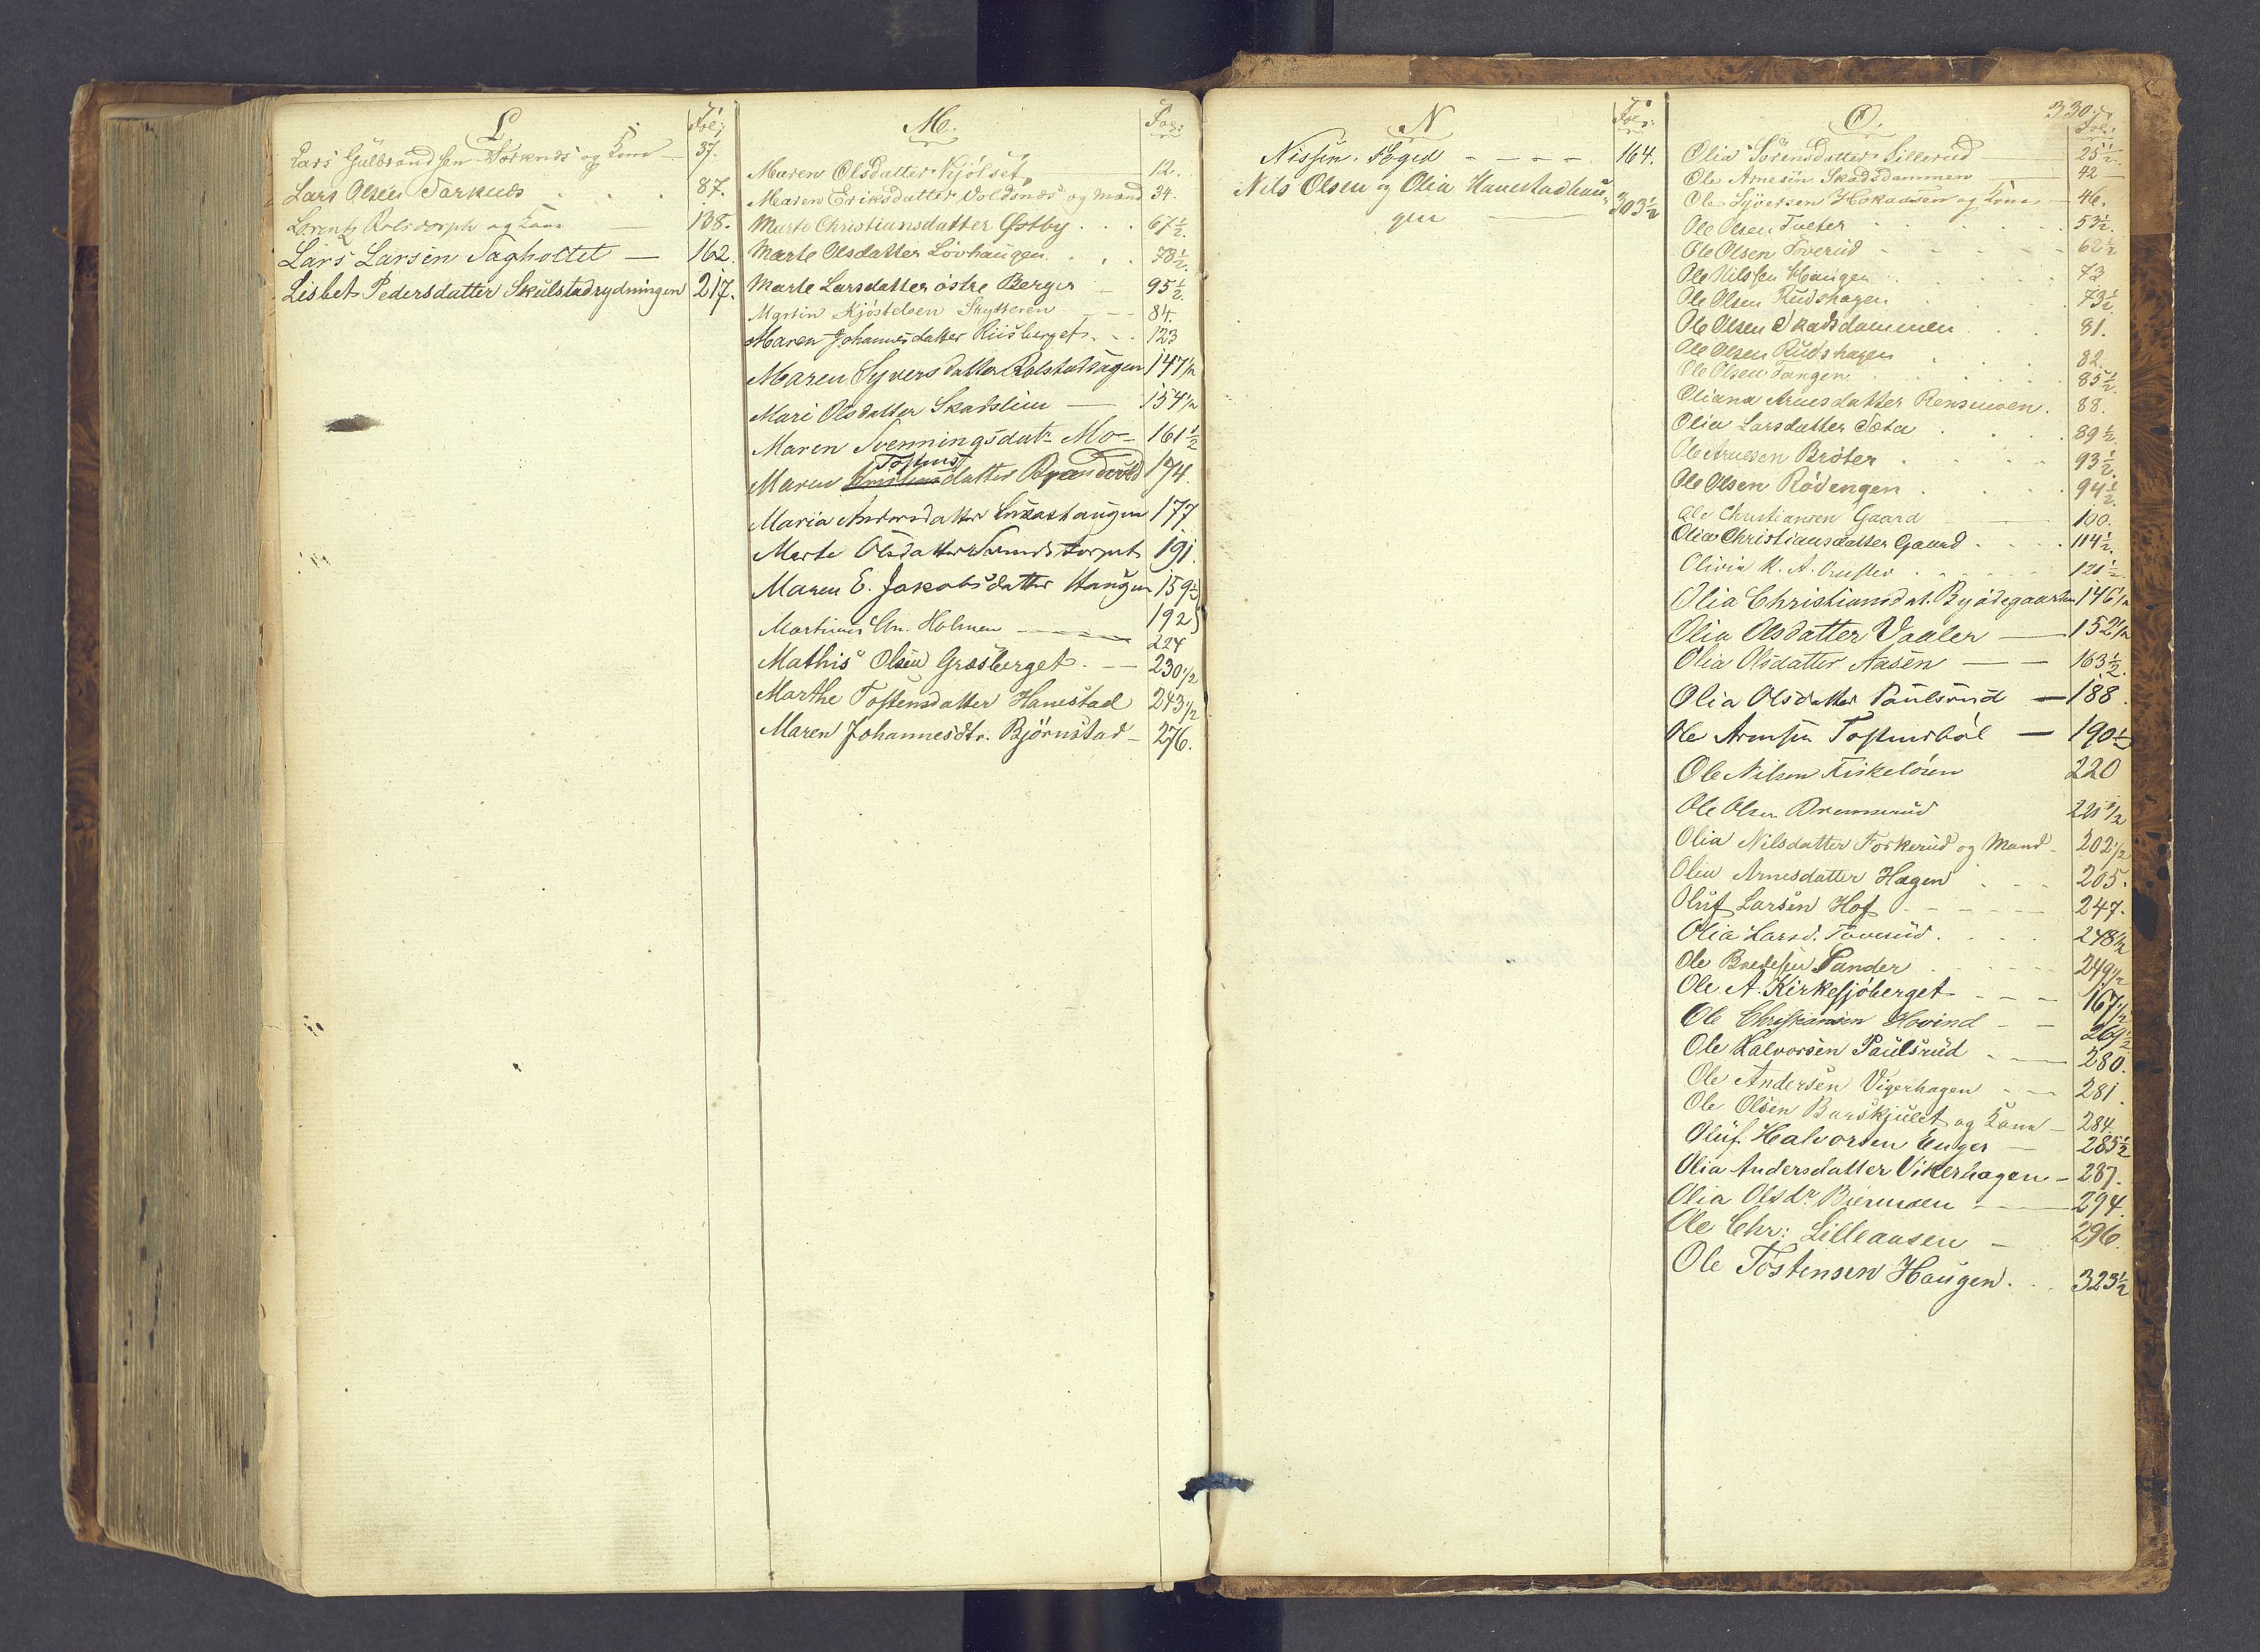 L. Fol:
Lars Gulbrandsen Torknes og Kone — 37.
Lars Olsen Torknes . . . 87.
Lorentz Rolsdorph og Kone — 138.
Lars Larsen Sagholtet — 162.
Lisbet Pedersdatter Skulstadrydningen 217.
M. Fol:
Maren Olsdatter Kjølset 12.
Maren Eriksdatter Voldsnes og Mand 34.
Marte Christiansdatter Østby . . . 67½.
Marte Olsdatter Lövhaugen . . . 78½.
Marte Larsdatter östre Berger — 95½.
Martin Kjöstelsen Skytteren — — 84.
Maren Johannesdatter Riisberget . . . 123
Maren Syversdatter Rolstadsagen 147½
Mari Olsdatter Skadslien — 154½
Maren Svenningsdatr Mo — 161½
Maren Tostensdatter Brandvold 174.
Maria Andersdatter Lukashaugen 177
Marte Olsdatter Sundstorpet 191.
Maren E. Jakobsdatter Haugen 159½
192
Martinus Chr. Holmen — — — 224
Mathis Olsen Græsberget . — 230½
Marthe Tostensdatter Hanestad 243½
Maren Johannesdtr. Björnstad — 276.
N Fol:
Nissen. Foged — — — — 164.
Nils Olsen og Olia Hanestadhau-
gen — 303½
330.
O. Fol:
Olia Sörensdatter Sillerud — 25½.
Ole Arnesen Skadsdammen — 42 —
Ole Syversen Hokaasen og Kone — 46.
Ole Olsen Tveter . . . 53½.
Ole Olsen Tverud - - - 62½
Ole Nilssen Haugen . . . 73
Ole Olsen Rudshagen . . . 73½
Ole Olsen Skadsdammen . . . 81.
Ole Olsen Rudshagen . . . 82.
Ole Olsen Tangen . . . 85½.
Oliana Arnesdatter Rensmoen . 88.
Olia Larsdatter Sæta . . . 89½.
Ole Arnesen Bröter . . . 93½.
Ole Olsen Rödengen . . . 94½.
Ole Christiansen Gaard — 100.
Olia Christiansdatter Gaard . . . 114½.
Olivia K. A. . . . 121½.
Olia Christiansdat. Bysdegaarden 146½
Olia Olsdatter Vaaler — 152½
Olia Olsdatter Aasen — — 163½.
Olia Olsdatter Paulsrud — 188.
Ole Arnesen Tostensböl — 190½
Ole Nilsen Fiskelösen 220
Ole Olsen Brennerud 221½
Olia Nilsdatter Forkerud og Mand — 202½
Olia Arnesdatter Hagen . — — 205.
Oluf Larsen Hof — — — 247.
Olia Larsd. Toverud . . . 248½
Ole Bredesen Pander . . . 249½
Ole A. Kirkesjöberget — — — 167½
Ole Christiansen Hovind — — 269½
Ole Halvorsen Paulsrud . — 280.
Ole Andersen Vigerhagen — — 281.
Ole Olsen Barskjulet og Kone — 284.
Oluf. Halvorsen Enger — 285½
Olia Andersdatter Vikerhagen — 287.
Olia Olsdr Biermoen — — 294.
Ole Chr: Lilleaasen — 296.
Ole Töstensen Haugen. . . 323½